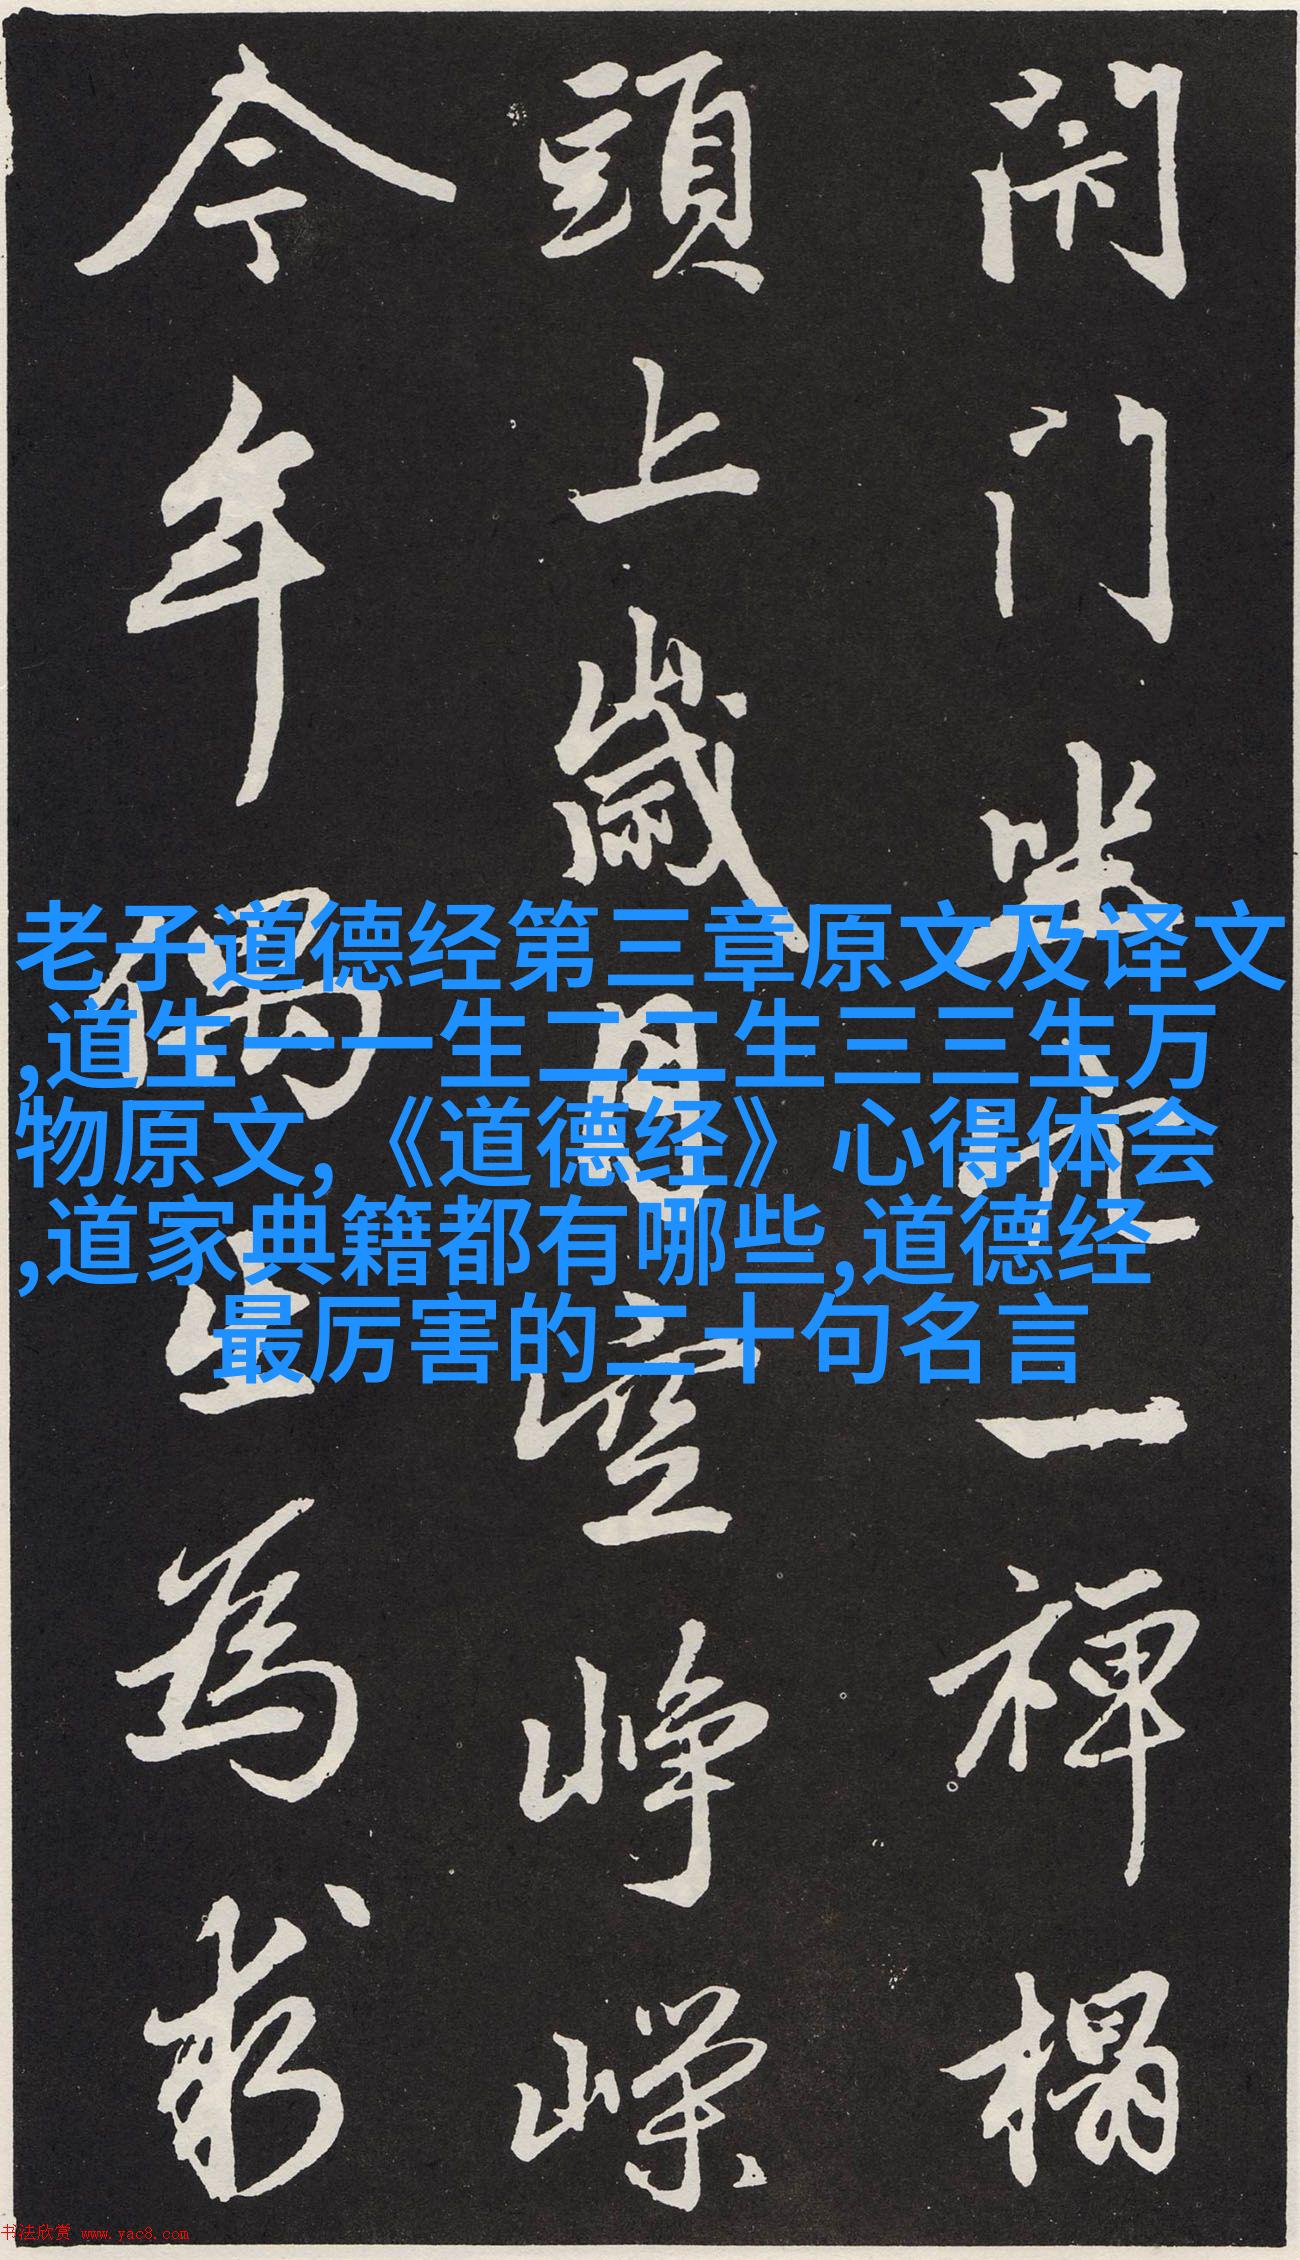 閉門坐穴一禪榻
頭上歲月空崢嶸
今年偶出為求
老子道德经第三章原文及译文
,道生一一生二二生三三生万
物原文,《道德经》心得体会
,道家典籍都有哪些,道德经
最厉害的二十句名言
书法欣赏 www.yac8.com